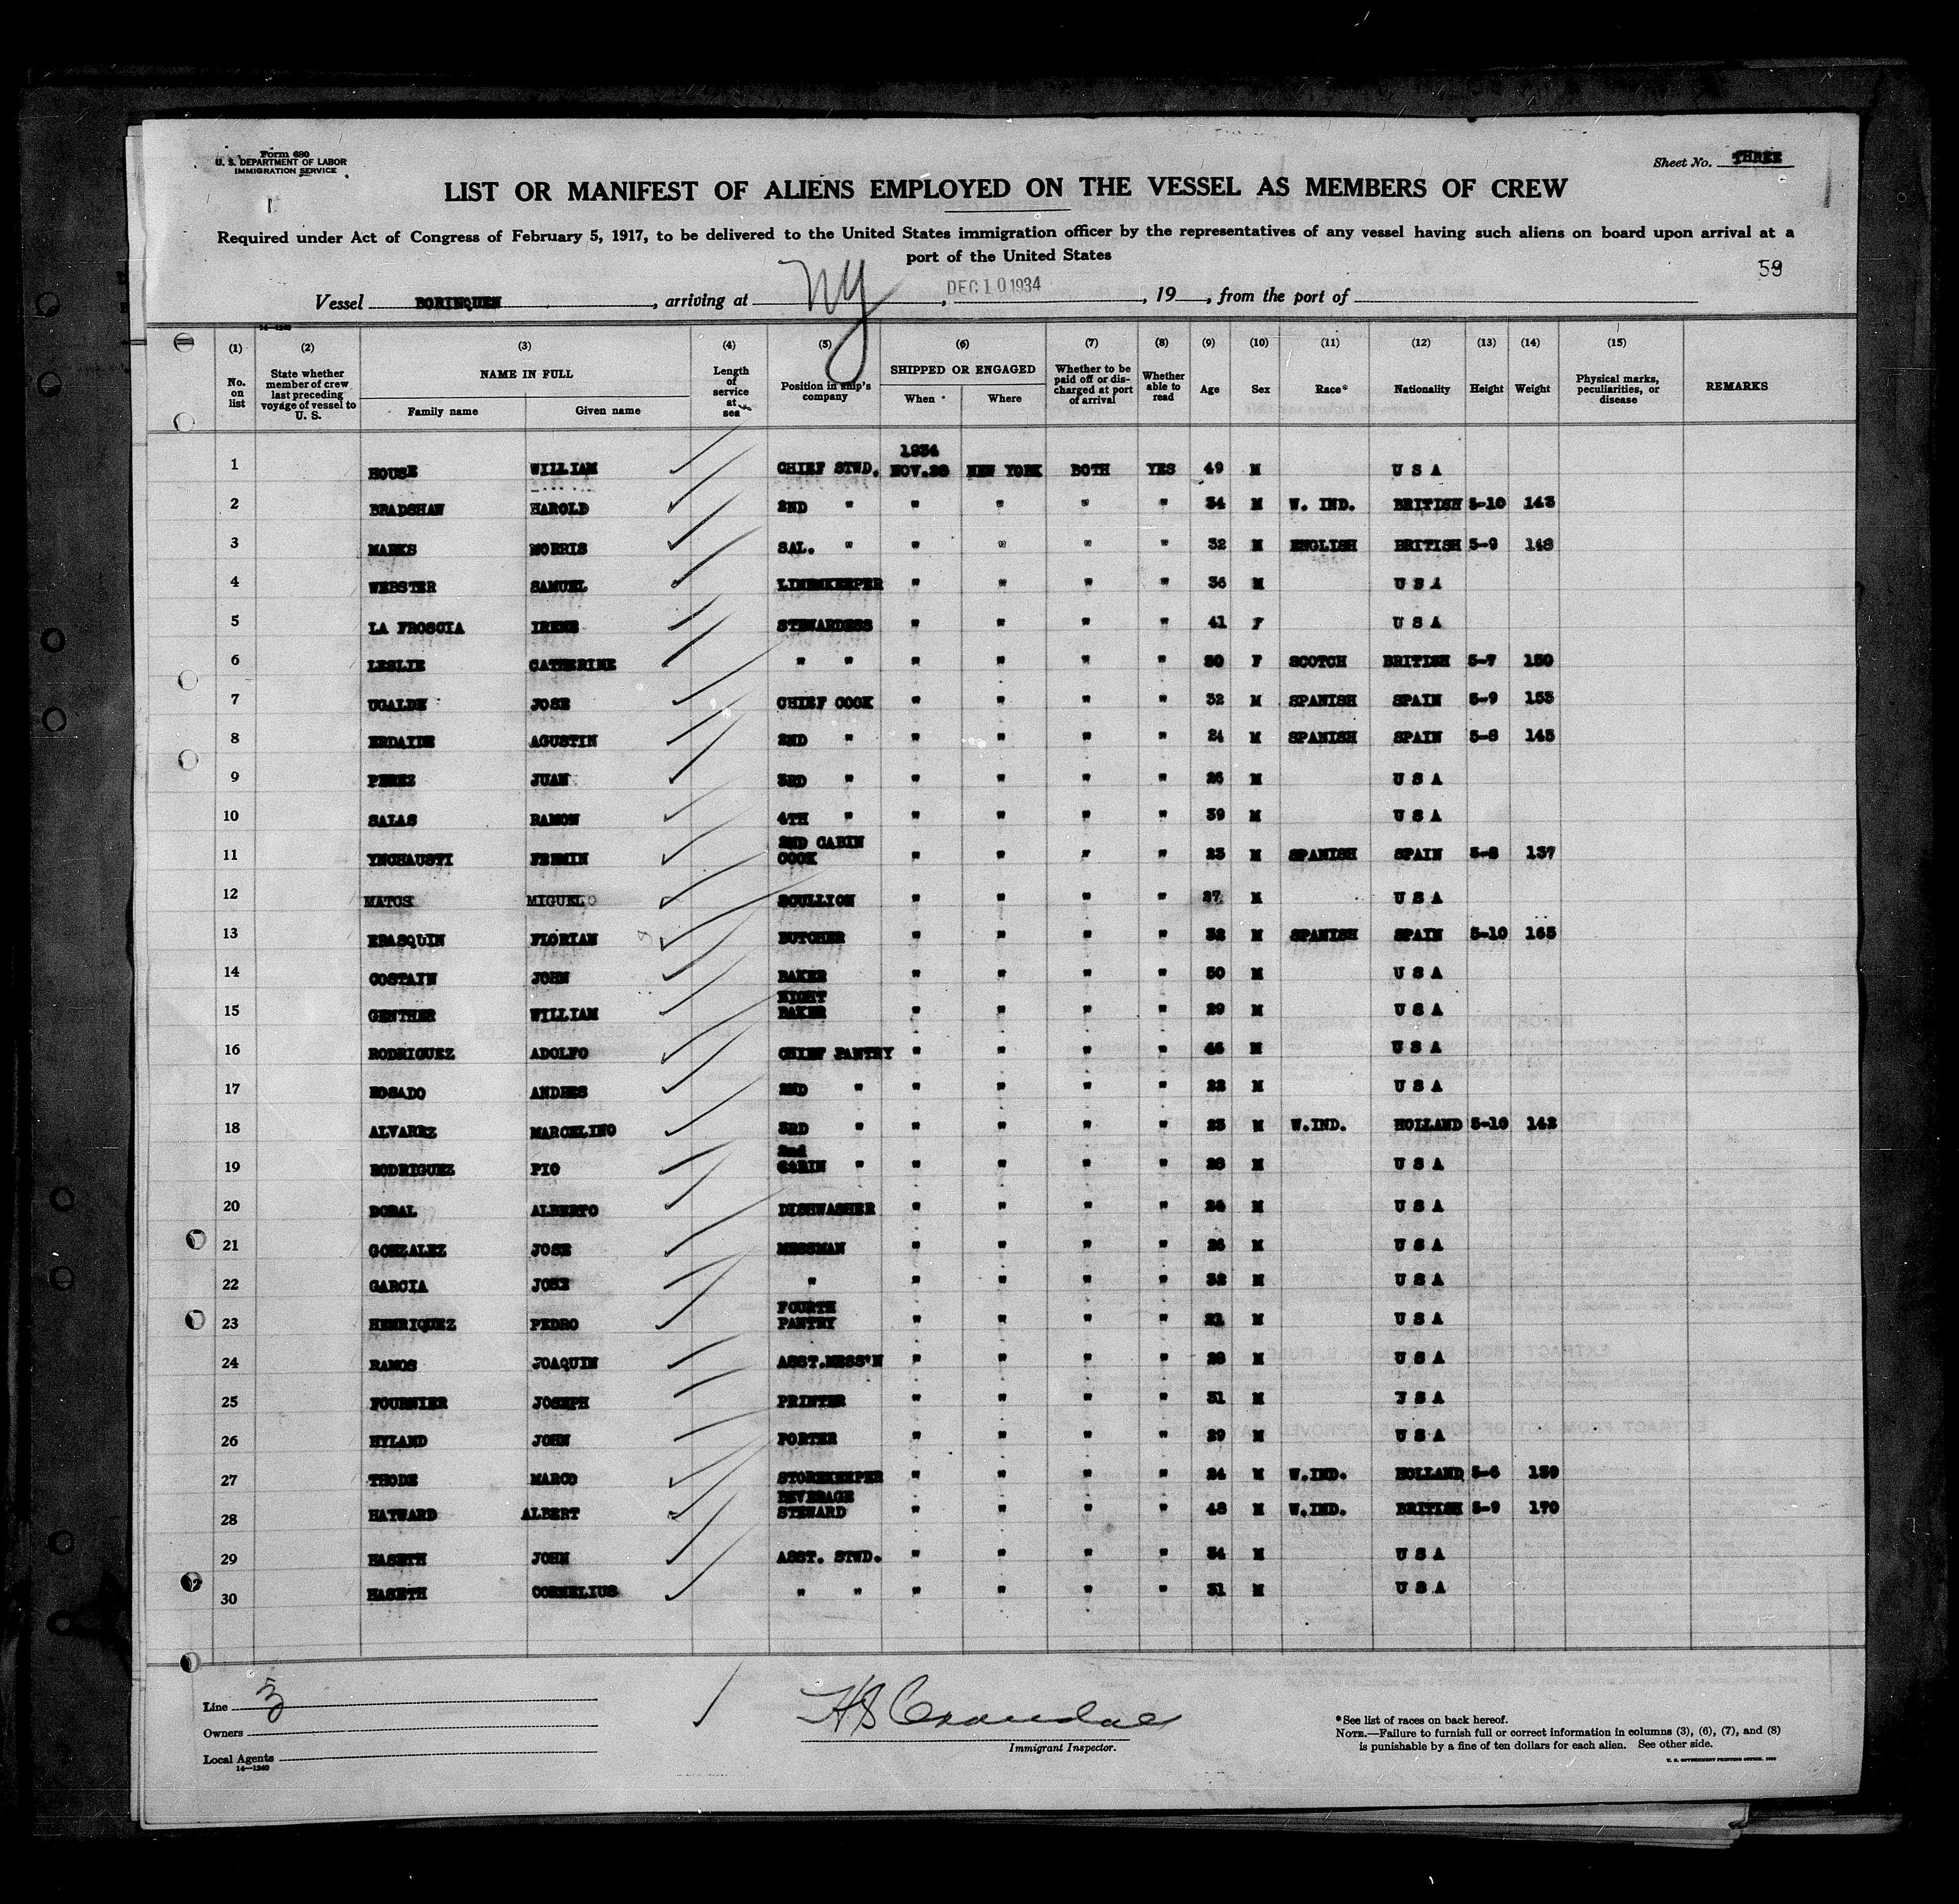 Form 680
U. S. DEPARTMENT OF LABOR
IMMIGRATION SERVICE
Sheet No. THREE
LIST OR MANIFEST OF ALIENS EMPLOYED ON THE VESSEL AS MEMBERS OF CREW
Required under Act of Congress of February 5, 1917, to be delivered to the United States immigration officer by the representatives of any vessel having such aliens on board upon arrival at a
port of the United States
59
Vessel BORINQUEN, arriving at NY, DEC 10 1934, 19, from the port of
14—1240
(1) (2) (3) (4) (5) (6) (7) (8) (9) (10) (11) (12) (13) (14) (15)
No. on list State whether member of crew last preceding voyage of vessel to U. S. NAME IN FULL Family name Given name Length of service at sea Position in ship's company SHIPPED OR ENGAGED When Where Whether to be paid off or discharged at port of arrival Whether able to read Age Sex Race* Nationality Height Weight Physical marks, peculiarities, or disease REMARKS
1934
1 HOUSE WILLIAM CHIEF STWD. NOV.28 NEW YORK BOTH YES 49 M U S A
2 BRADSHAW HAROLD 2ND " " " " " 34 M W. IND. BRITISH 5-10 143
3 MARKS MORRIS SAL. " " " " " 32 M ENGLISH BRITISH 5-9 148
4 WEBSTER SAMUEL LINENKEEPER " " " " 36 M U S A
5 LA FROSCIA IRENE STEWARDESS " " " " 41 F U S A
6 LESLIE CATHERINE " " " " " " 30 F SCOTCH BRITISH 5-7 150
7 UGALDE JOSE CHIEF COOK " " " " 32 M SPANISH SPAIN 5-9 153
8 ERDAIDE AGUSTIN 2ND " " " " " 24 M SPANISH SPAIN 5-8 145
9 PEREZ JUAN 3RD " " " " " 26 M U S A
10 SALAS RAMON 4TH " " " " " 39 M U S A
11 YNCHAUSTI FERMIN 2ND CABIN COOK " " " " 23 M SPANISH SPAIN 5-8 137
12 MATOS MIGUEL SCULLION " " " " 27 M U S A
13 ERASQUIN FLORIAN BUTCHER " " " " 32 M SPANISH SPAIN 5-10 165
14 COSTAIN JOHN BAKER " " " " 50 M U S A
15 GENTHER WILLIAM NIGHT BAKER " " " " 29 M U S A
16 RODRIGUEZ ADOLFO CHIEF PANTRY " " " " 46 M U S A
17 ROSADO ANDRES 2ND " " " " " 22 M U S A
18 ALVAREZ MARCELINO 3RD " " " " " 23 M W.IND. HOLLAND 5-10 142
19 RODRIGUEZ PIO 2nd CABIN " " " " " 28 M U S A
20 BORAL ALBERTO DISHWASHER " " " " 24 M U S A
21 GONZALEZ JOSE MESSMAN " " " " 26 M U S A
22 GARCIA JOSE " " " " " 32 M U S A
23 HENRIQUEZ PEDRO FOURTH PANTRY " " " " 21 M U S A
24 RAMOS JOAQUIN ASST.MESS'N " " " " 28 M U S A
25 FOURNIER JOSEPH PRINTER " " " " 31 M U S A
26 HYLAND JOHN PORTER " " " " 29 M U S A
27 THODE MARCO STOREKEEPER " " " " 24 M W.IND. HOLLAND 5-6 139
28 HAYWARD ALBERT BEVERAGE STEWARD " " " " 48 M W.IND. BRITISH 5-9 170
29 HASETH JOHN ASST. STWD. " " " " 34 M U S A
30 HASETH CORNELIUS " " " " " " 31 M U S A
Line 3
Owners
Local Agents
14—1240
H S Crandall
Immigrant Inspector.
*See list of races on back hereof.
NOTE.—Failure to furnish full or correct information in columns (3), (6), (7), and (8)
is punishable by a fine of ten dollars for each alien. See other side.
U. S. GOVERNMENT PRINTING OFFICE